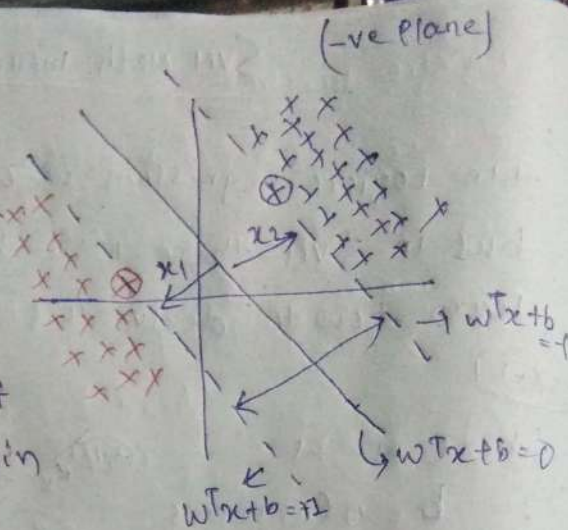 (-ve plane)
x2
x1
→ wᵀx+b
= -1
↳ wᵀx+b=0
in
wᵀx+b=+1